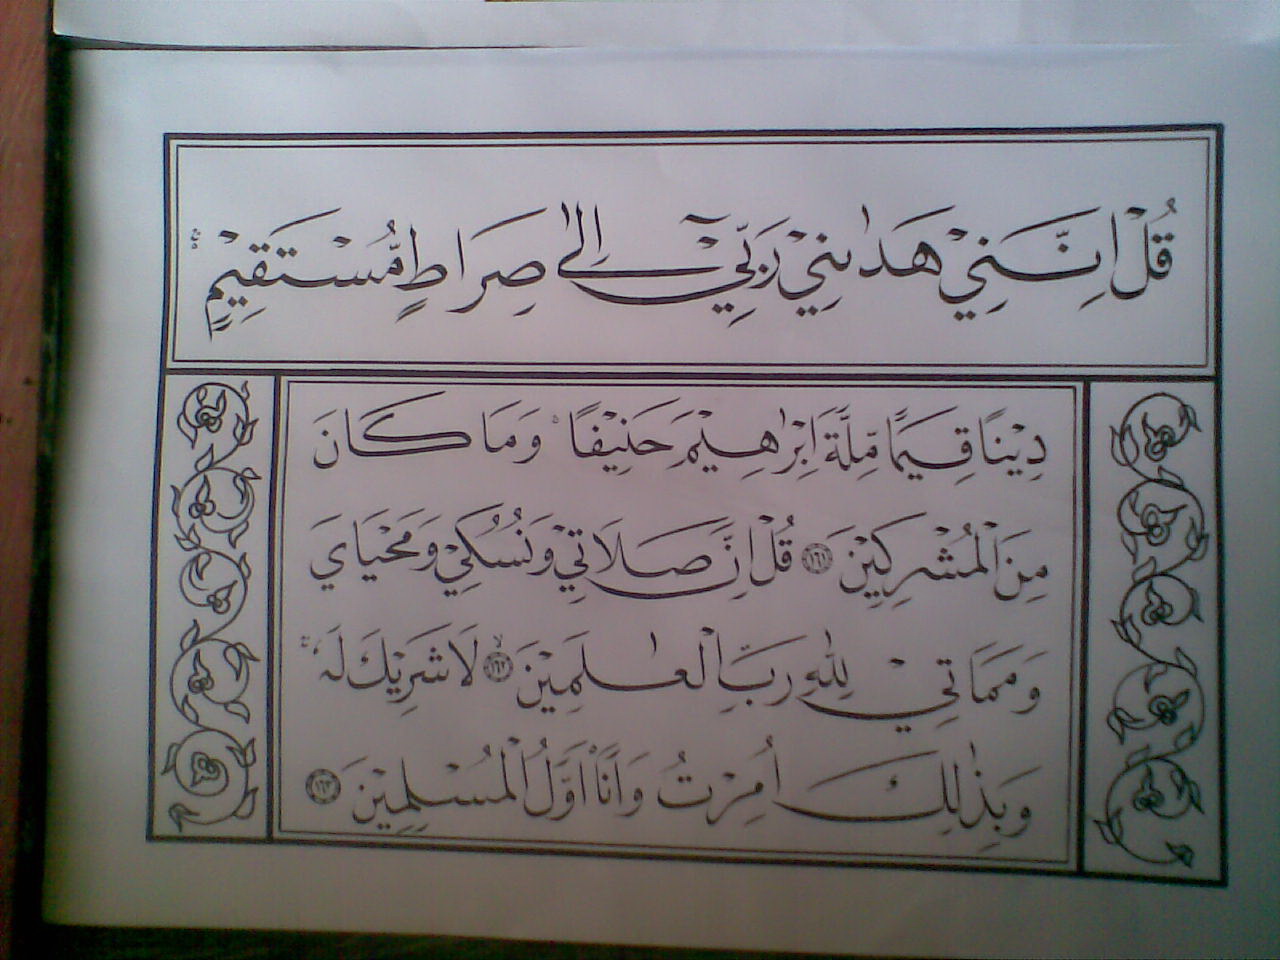 قُلْ اِنَّنِيْ هَدٰىنِيْ رَبِّيْٓ اِلٰى صِرَاطٍ مُّسْتَقِيْمٍ ۚ
دِيْنًا قِيَمًا مِّلَّةَ اِبْرٰهِيْمَ حَنِيْفًا ۚ وَمَا كَانَ
مِنَ الْمُشْرِكِيْنَ ١٦١ قُلْ اِنَّ صَلَاتِيْ وَنُسُكِيْ وَمَحْيَايَ
وَمَمَاتِيْ لِلّٰهِ رَبِّ الْعٰلَمِيْنَ ۙ ١٦٢ لَا شَرِيْكَ لَهٗ ۚ
وَبِذٰلِكَ اُمِرْتُ وَاَنَا۠ اَوَّلُ الْمُسْلِمِيْنَ ١٦٣